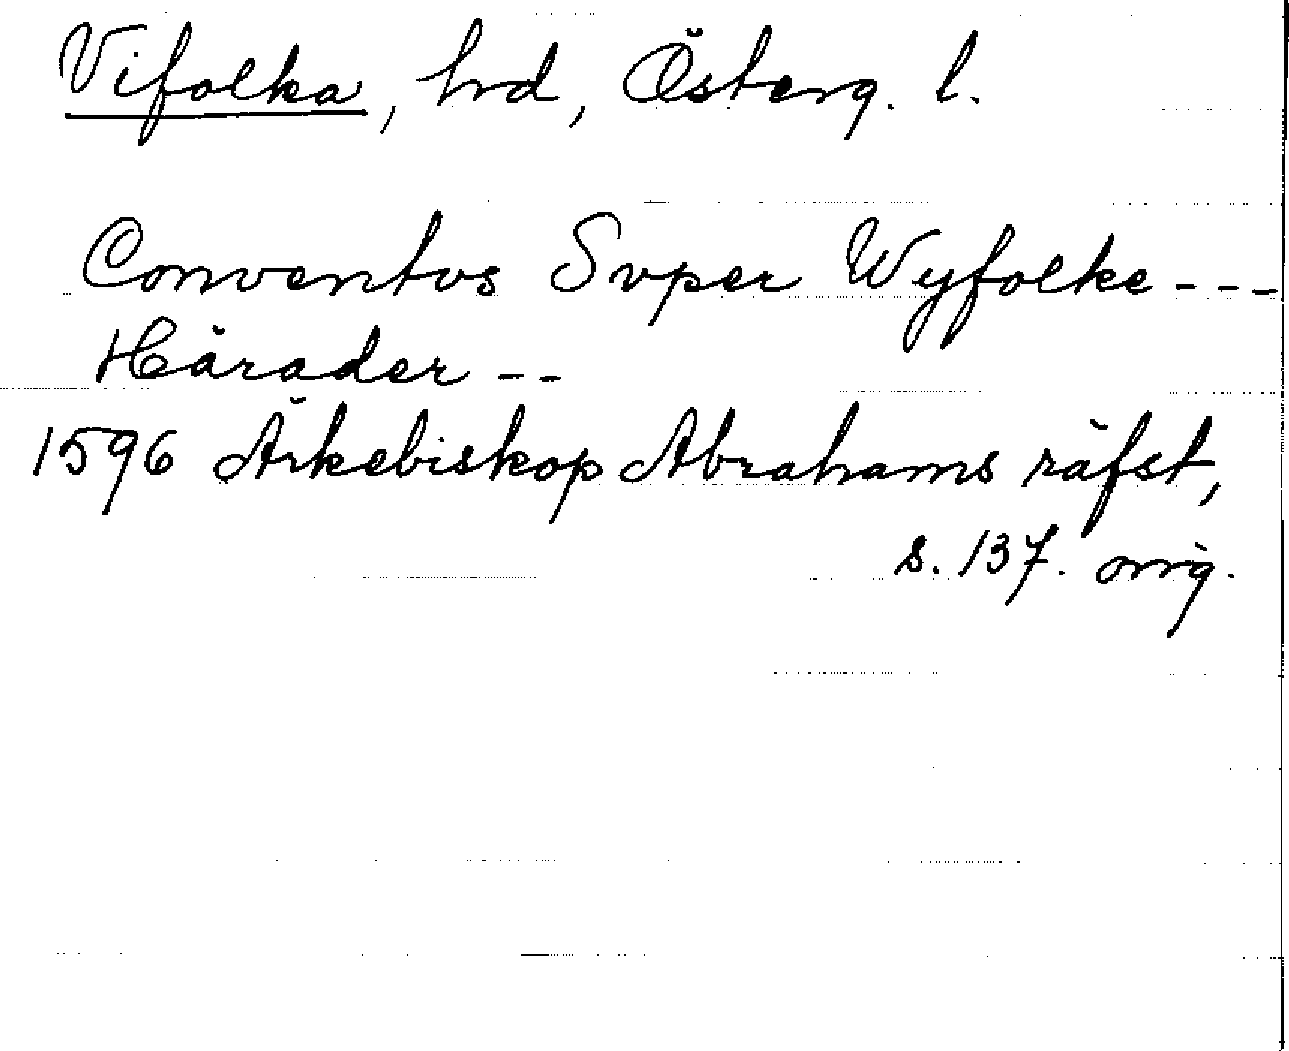 Vifolka, hrd, Österg. l.
Conventvs Svper Wyfolke ---
Härader --
1596 Ärkebiskop Abrahams räfst,
s. 137. orig.